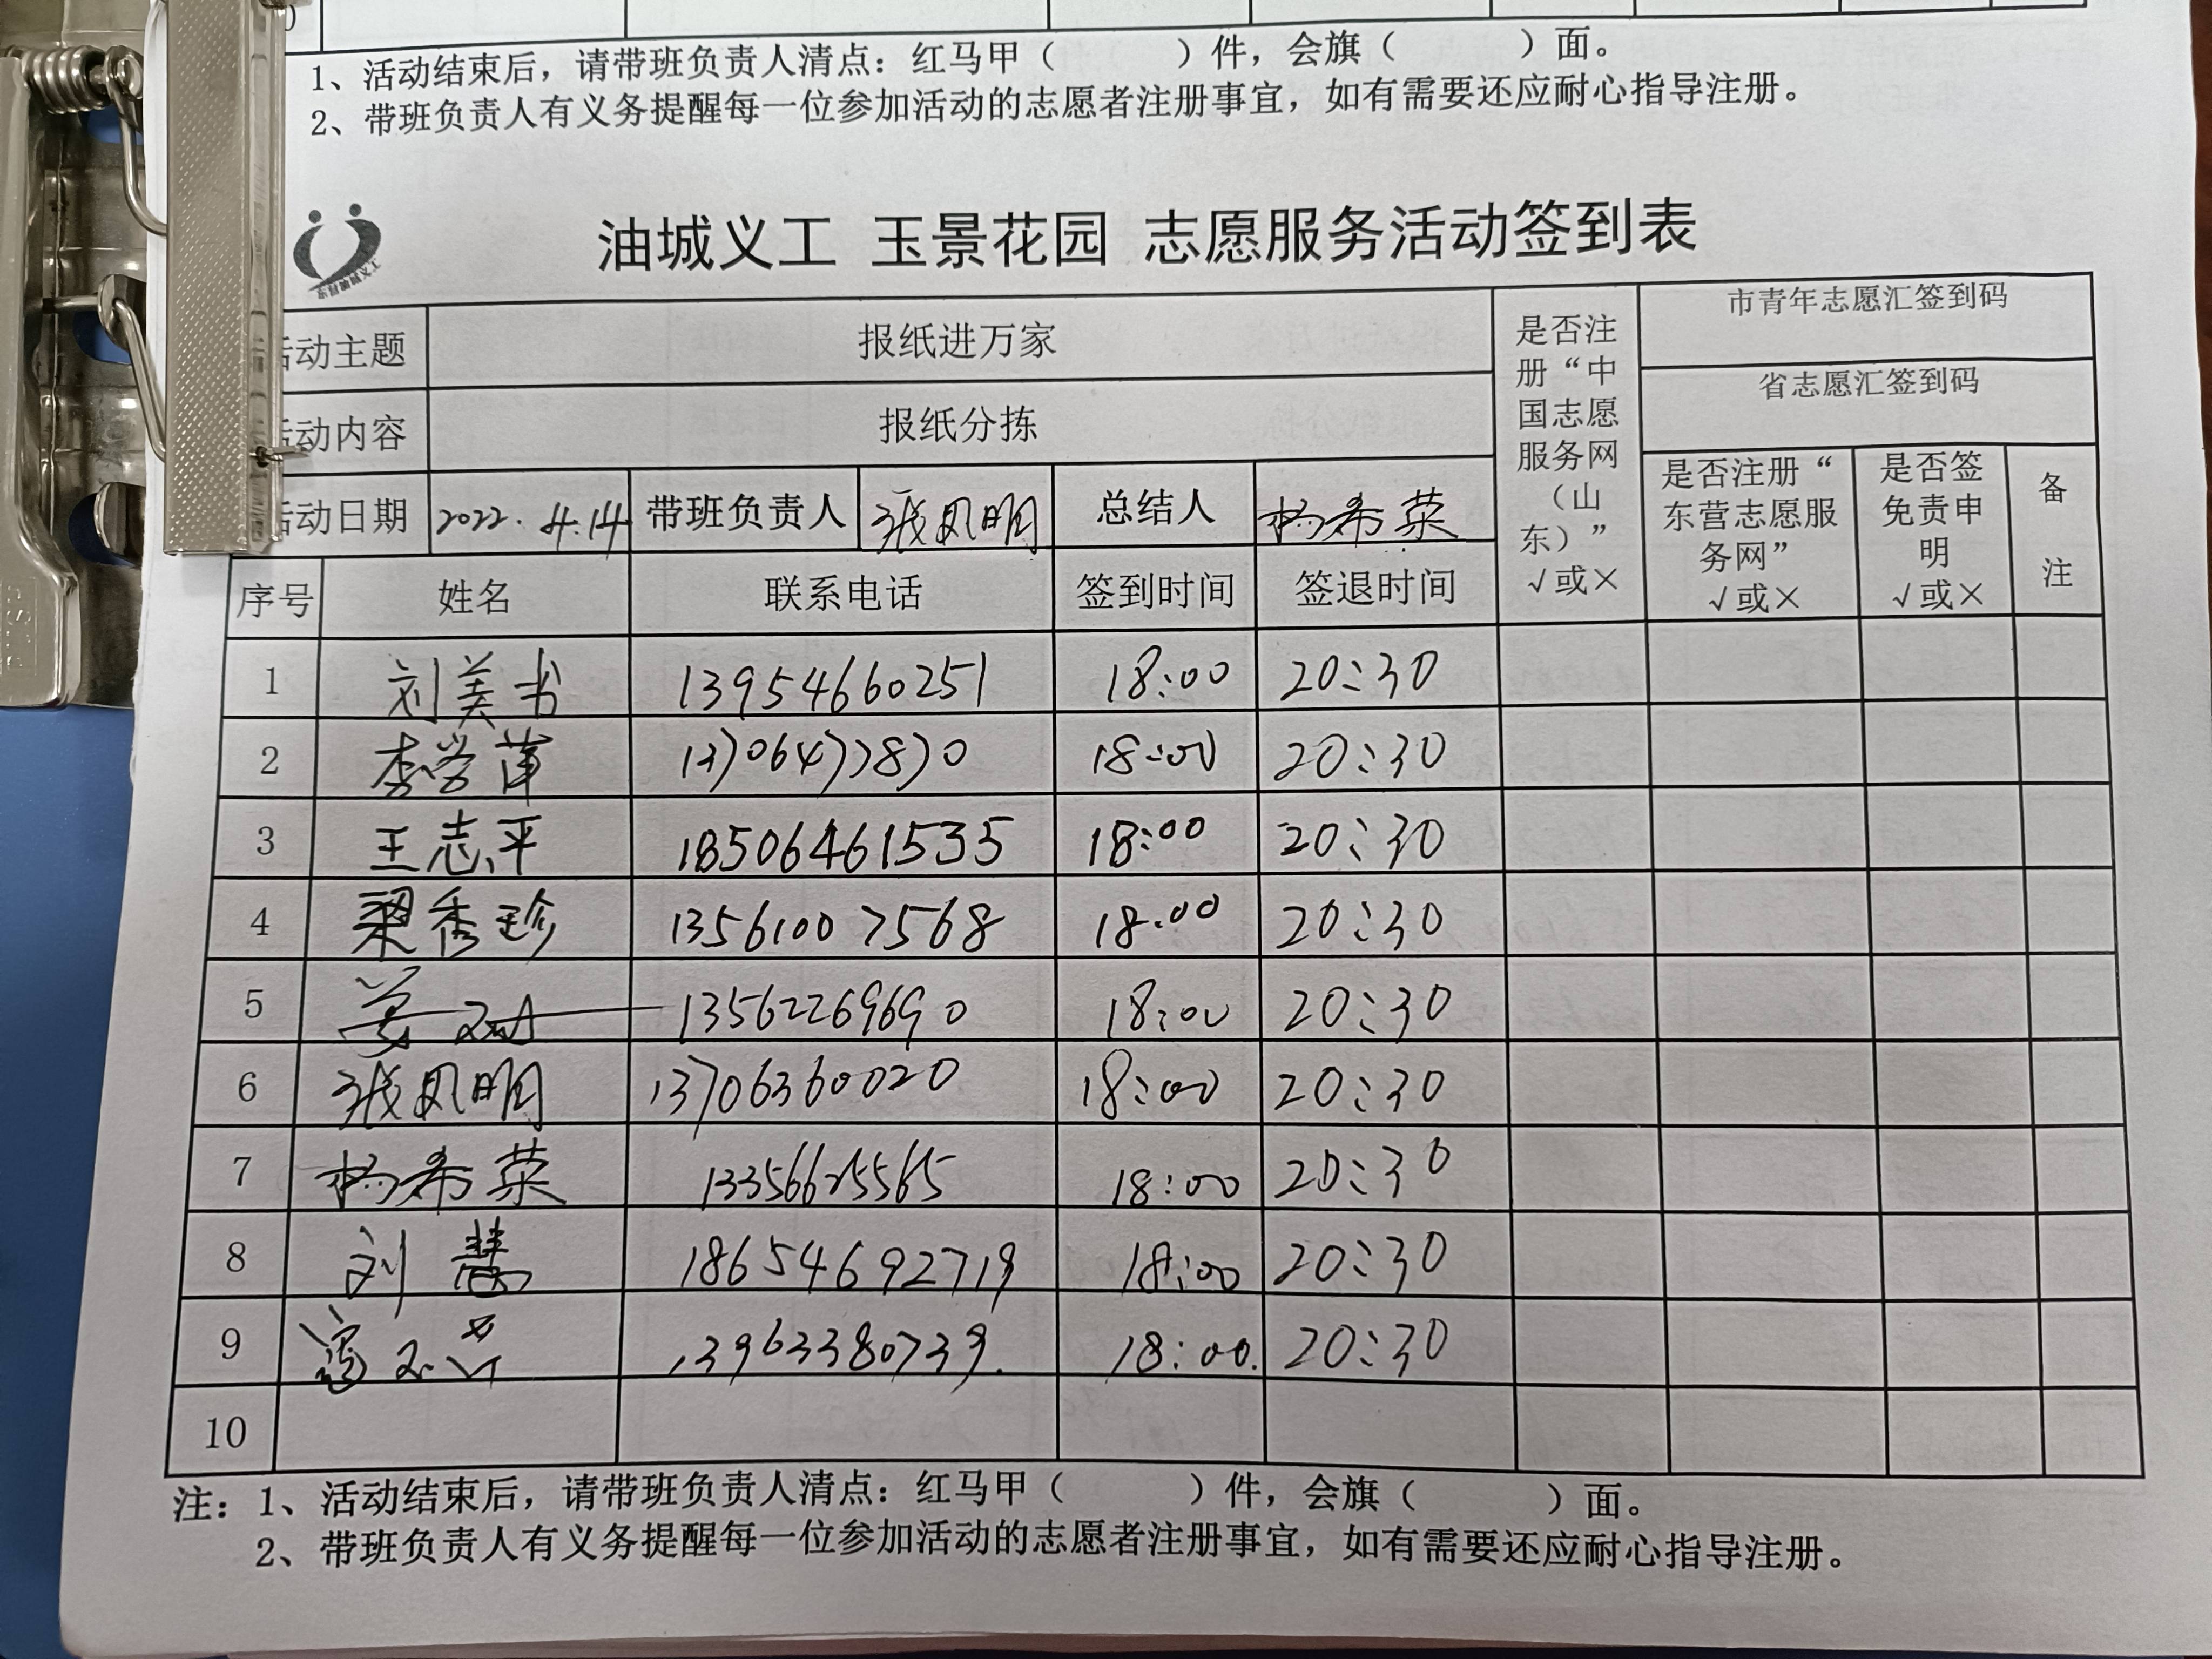 1、活动结束后，请带班负责人清点：红马甲（ ）件，会旗（ ）面。
2、带班负责人有义务提醒每一位参加活动的志愿者注册事宜，如有需要还应耐心指导注册。
油城义工 玉景花园 志愿服务活动签到表
活动主题 报纸进万家 是否注册“中国志愿服务网（山东）” √或× 市青年志愿汇签到码
省志愿汇签到码
活动内容 报纸分拣
活动日期 2022.4.14 带班负责人 张凤明 总结人 杨希荣 是否注册“东营志愿服务网” √或× 是否签免责申明 √或× 备注
序号 姓名 联系电话 签到时间 签退时间
1 刘美书 13954660251 18:00 20:30
2 李学萍 13706477870 18:00 20:30
3 王志平 18506461535 18:00 20:30
4 梁秀珍 13561007568 18:00 20:30
5 13562269690 18:00 20:30
6 张凤明 13706360020 18:00 20:30
7 杨希荣 13356625565 18:00 20:30
8 刘慧 18654692719 18:00 20:30
9 13963380739. 18:00. 20:30
10
注：1、活动结束后，请带班负责人清点：红马甲（ ）件，会旗（ ）面。
2、带班负责人有义务提醒每一位参加活动的志愿者注册事宜，如有需要还应耐心指导注册。